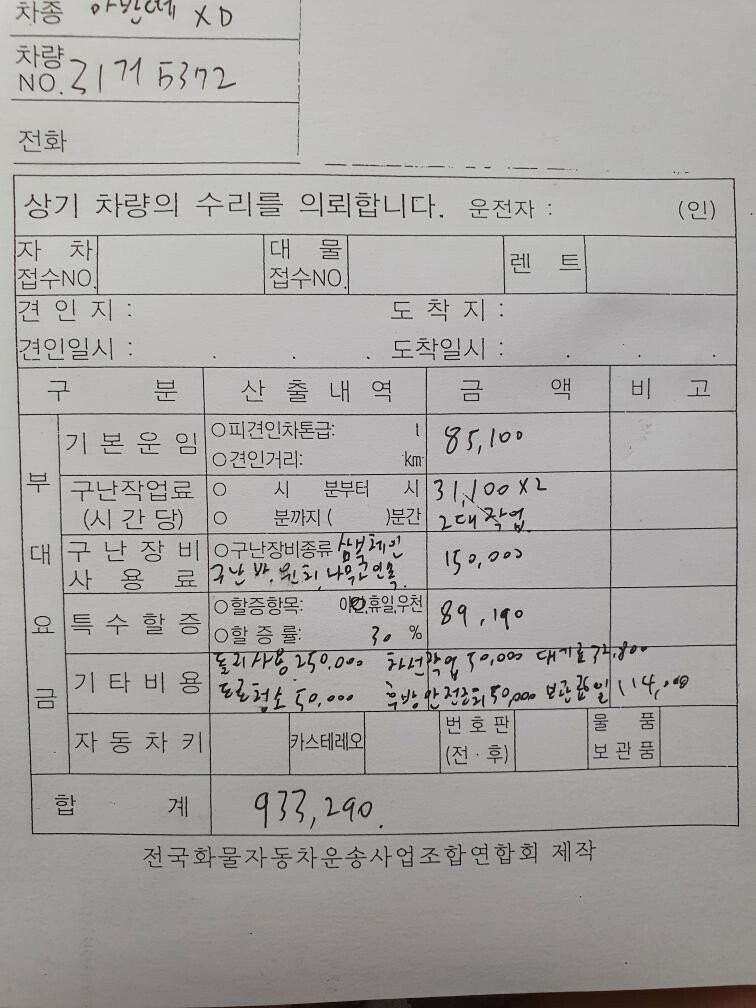 차종 아반떼 XD
차량
NO. 31거 5372
전화
상기 차량의 수리를 의뢰합니다. 운전자 : (인)
자 차 접수NO. 대 물 접수NO. 렌 트
견 인 지 : 도 착 지 :
견인일시 : . . . 도착일시 : . . .
구 분 산 출 내 역 금 액 비 고
부 대 요 금
기 본 운 임 ○피견인차톤급: t 85,100
○견인거리: km
구난작업료 ○ 시 분부터 시 31,100 X 2
(시 간 당) ○ 분까지 ( )분간 2대 작업
구 난 장 비 ○구난장비종류 쌈빡체인 150,000
사 용 료 구난 바, 윈치, 나무고인목
특 수 할 증 ○할증항목: 야간,휴일,우천 89,190
○할 증 률: 30 %
기 타 비 용 돌리사용 250,000 차선작업 50,000 대기료 32,800
도로청소 50,000 후방안전조치 50,000 보관 일 114,000
자 동 차 키 카스테레오 번 호 판 (전 · 후) 물 품 보 관 품
합 계 933,290.
전국화물자동차운송사업조합연합회 제작